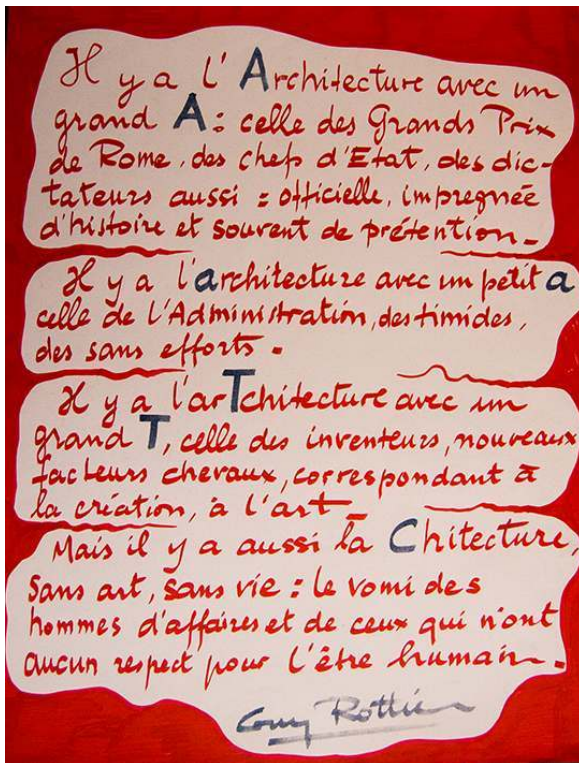 Il y a l'Architecture avec un
grand A : celle des Grands Prix
de Rome, des chefs d'Etat, des dic-
tateurs aussi : officielle, impregnée
d'histoire et souvent de prétention -
Il y a l'architecture avec un petit a
celle de l'Administration, des timides,
des sans efforts.
Il y a l'arTchitecture avec un
grand T, celle des inventeurs, nouveaux
facteurs chevaux, correspondant à
la création, à l'art -
Mais il y a aussi la Chitecture,
sans art, sans vie : le vomi des
hommes d'affaires et de ceux qui n'ont
aucun respect pour l'être humain.
Guy Rottier